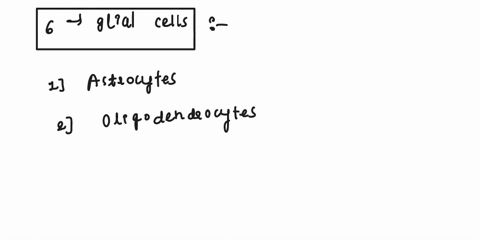 6 → glial cells :-
1] Astrocytes
2] Oligodendrocytes